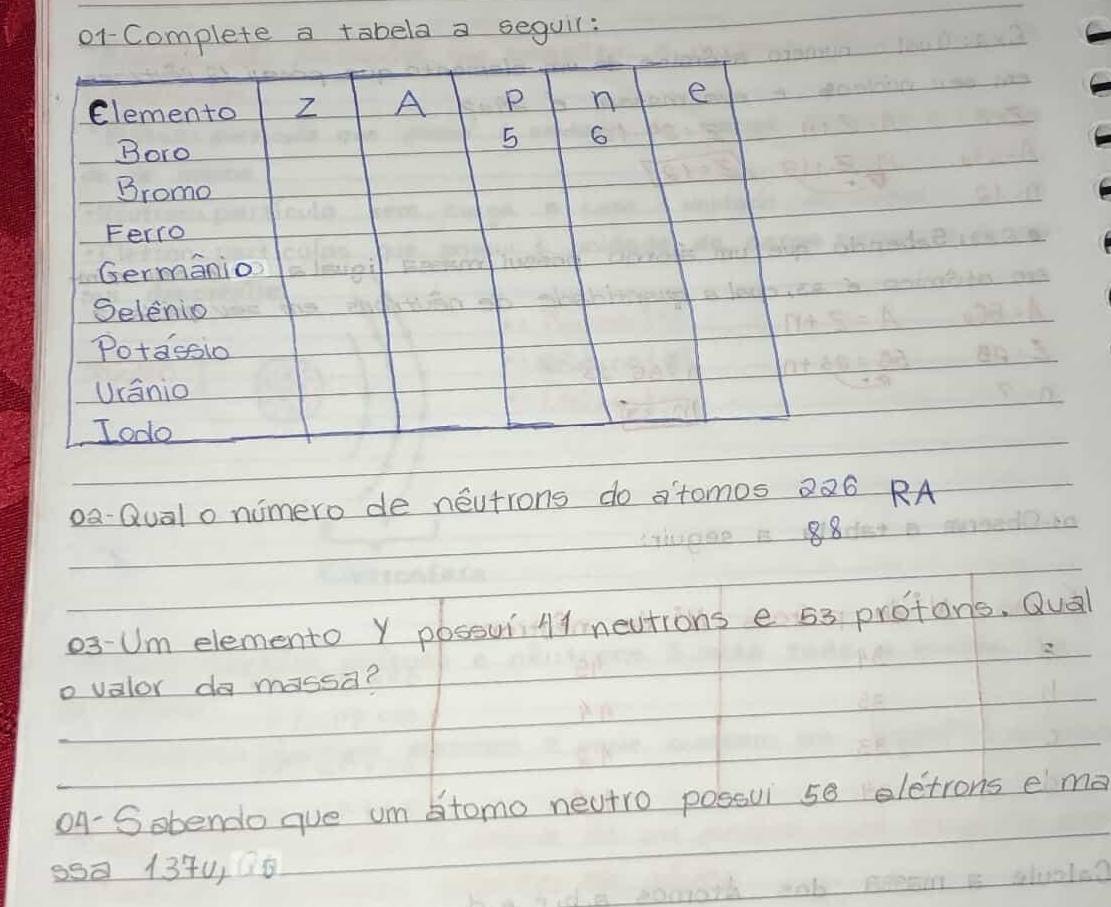 01-Complete a tabela a seguir:
Elemento Z A P n e
Boro 5 6
Bromo
Ferro
Germânio
Selênio
Potássio
Urânio
Iodo
02-Qual o número de nêutrons do átomos 226 RA
88
03-Um elemento Y possui neutrons e 53 prótons. Qual
o valor da massa?
04-Sabendo que um átomo neutro possui elétrons e ma
ssa 137u,